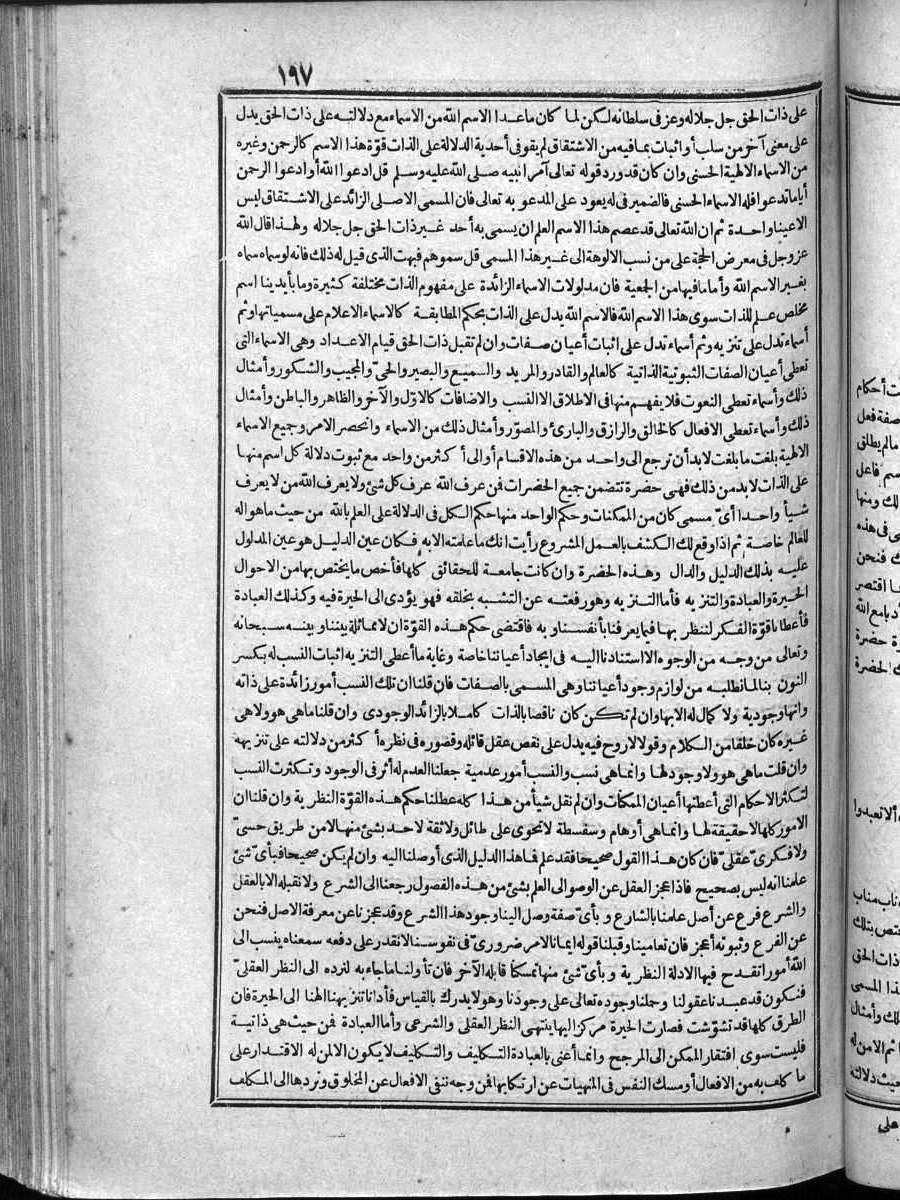 ١٩٧
على ذات الحق جل جلاله وعز فى سلطانه لكن لما كان ماعدا الاسم الله من الاسماء مع دلالته على ذات الحق يدل
على معنى آخر من سلب أو اثبات بما فيه من الاشتقاق لم يقو فى أحدية الدلالة على الذات قوة هذا الاسم كالرحمن وغيره
من الاسماء الالهية الحسنى وان كان قد ورد قوله تعالى آمرا نبيه صلى الله عليه وسلم قل ادعوا الله أو ادعوا الرحمن
أياما تدعوا فله الاسماء الحسنى فالضمير فى له يعود على المدعو به تعالى فان المسمى الاصلى الزائد على الاشتقاق ليس
الا عينا واحدة ثم ان الله تعالى قد عصم هذا الاسم العلم ان يسمى به أحد غير ذات الحق جل جلاله ولهذا قال الله
عز وجل فى معرض الحجة على من نسب الالوهة الى غير هذا المسمى قل سموهم فبهت الذى قيل له ذلك فانه لو سماه سماه
بغير الاسم الله وأما ما فيها من الجمعية فان مدلولات الاسماء الزائدة على مفهوم الذات مختلفة كثيرة وما بأيدينا اسم
مخلص علم للذات سوى هذا الاسم الله فالاسم الله يدل على الذات بحكم المطابقة كالاسماء الاعلام على مسمياتها وثم
أسماء تدل على تنزيه وثم أسماء تدل على اثبات أعيان صفات وان لم تقبل ذات الحق قيام الاعداد وهى الاسماء التى
تعطى أعيان الصفات الثبوتية الذاتية كالعالم والقادر والمريد والسميع والبصير والحىّ والمجيب والشكور وأمثال
ذلك وأسماء تعطى النعوت فلا يفهم منها فى الاطلاق الا النسب والاضافات كالاوّل والآخر والظاهر والباطن وأمثال
ذلك وأسماء تعطى الافعال كالخالق والرازق والبارئ والمصوّر وأمثال ذلك من الاسماء وانحصر الامر وجميع الاسماء
الالهية بلغت ما بلغت لا بد أن ترجع الى واحد من هذه الاقسام أو الى أكثر من واحد مع ثبوت دلالة كل اسم منها
على الذات لا بد من ذلك فهى حضرة تتضمن جميع الحضرات فمن عرف الله عرف كل شئ ولا يعرف الله من لا يعرف
شيأ واحدا أىّ مسمى كان من الممكنات وحكم الواحد منها حكم الكل فى الدلالة على العلم بالله من حيث ما هو اله
للعالم خاصة ثم اذا وقع لك الكشف بالعمل المشروع رأيت انك ما علمته الا به فكان عين الدليل هو عين المدلول
عليه بذلك الدليل والدال وهذه الحضرة وان كانت جامعة للحقائق كلها فأخص ما يختص بها من الاحوال
الحيرة والعبادة والتنزيه فأما التنزيه وهو رفعته عن التشبه بخلقه فهو يؤدى الى الحيرة فيه وكذلك العبادة
فأعطانا قوّة الفكر لننظر بها فيما يعرفنا بأنفسنا وبه فاقتضى حكم هذه القوّة ان لا مماثلة بيننا وبينه سبحانه
وتعالى من وجه من الوجوه الا استنادنا اليه فى ايجاد أعياننا خاصة وغاية ما أعطى التنزيه اثبات النسب له بكسر
النون بنا لما نطلبه من لوازم وجود أعياننا وهى المسمى بالصفات فان قلنا ان تلك النسب أمور زائدة على ذاته
وانها وجودية ولا كمال له الا بها وان لم تكن كان ناقصا بالذات كاملا بالزائد الوجودى وان قلنا ما هى هو ولا هى
غيره كان خلفا من الكلام وقولا لا روح فيه يدل على نقص عقل قائله وقصوره فى نظره أكثر من دلالته على تنزيهه
وان قلت ما هى هو ولا وجود لها وانما هى نسب والنسب أمور عدمية جعلنا العدم له أثر فى الوجود وتكثرت النسب
لتكثر الاحكام التى أعطتها أعيان الممكنات وان لم نقل شيأ من هذا كله عطلنا حكم هذه القوّة النظرية وان قلنا ان
الامور كلها لا حقيقة لها وانما هى أوهام وسفسطة لا تحوى على طائل ولا ثقة لاحد بشئ منها لا من طريق حسىّ
ولا فكرىّ عقلىّ فان كان هذا القول صحيحا فقد علم فما هذا الدليل الذى أوصلنا اليه وان لم يكن صحيحا فبأىّ شئ
علمنا انه ليس بصحيح فاذا عجز العقل عن الوصول الى العلم بشئ من هذه الفصول رجعنا الى الشرع ولا نقبله الا بالعقل
والشرع فرع عن أصل علمنا بالشارع وبأىّ صفة وصل الينا وجود هذا الشرع وقد عجزنا عن معرفة الاصل فنحن
عن الفرع وثبوته أعجز فان تعامينا وقبلنا قوله ايمانا لامر ضرورىّ فى نفوسنا لا نقدر على دفعه سمعناه ينسب الى
الله أمورا تقدح فيها الادلة النظرية وبأىّ شئ منها تمسكنا قابله الآخر فان تأولنا ما جاء به لنرده الى النظر العقلىّ
فنكون قد عبدنا عقولنا وحملنا وجوده تعالى على وجودنا وهو لا يدرك بالقياس فأدانا تنزيهنا الهنا الى الحيرة فان
الطرق كلها قد تشوّشت فصارت الحيرة مركزا اليها ينتهى النظر العقلى والشرعى وأما العبادة فمن حيث هى ذاتية
فليست سوى افتقار الممكن الى المرجح وانما أعنى بالعبادة التكاليف والتكليف لا يكون الا لمن له الاقتدار على
ما كلف به من الافعال أو مسك النفس فى المنهيات عن ارتكابها فمن وجه تنفى الافعال عن المخلوق ونردها الى المكلف